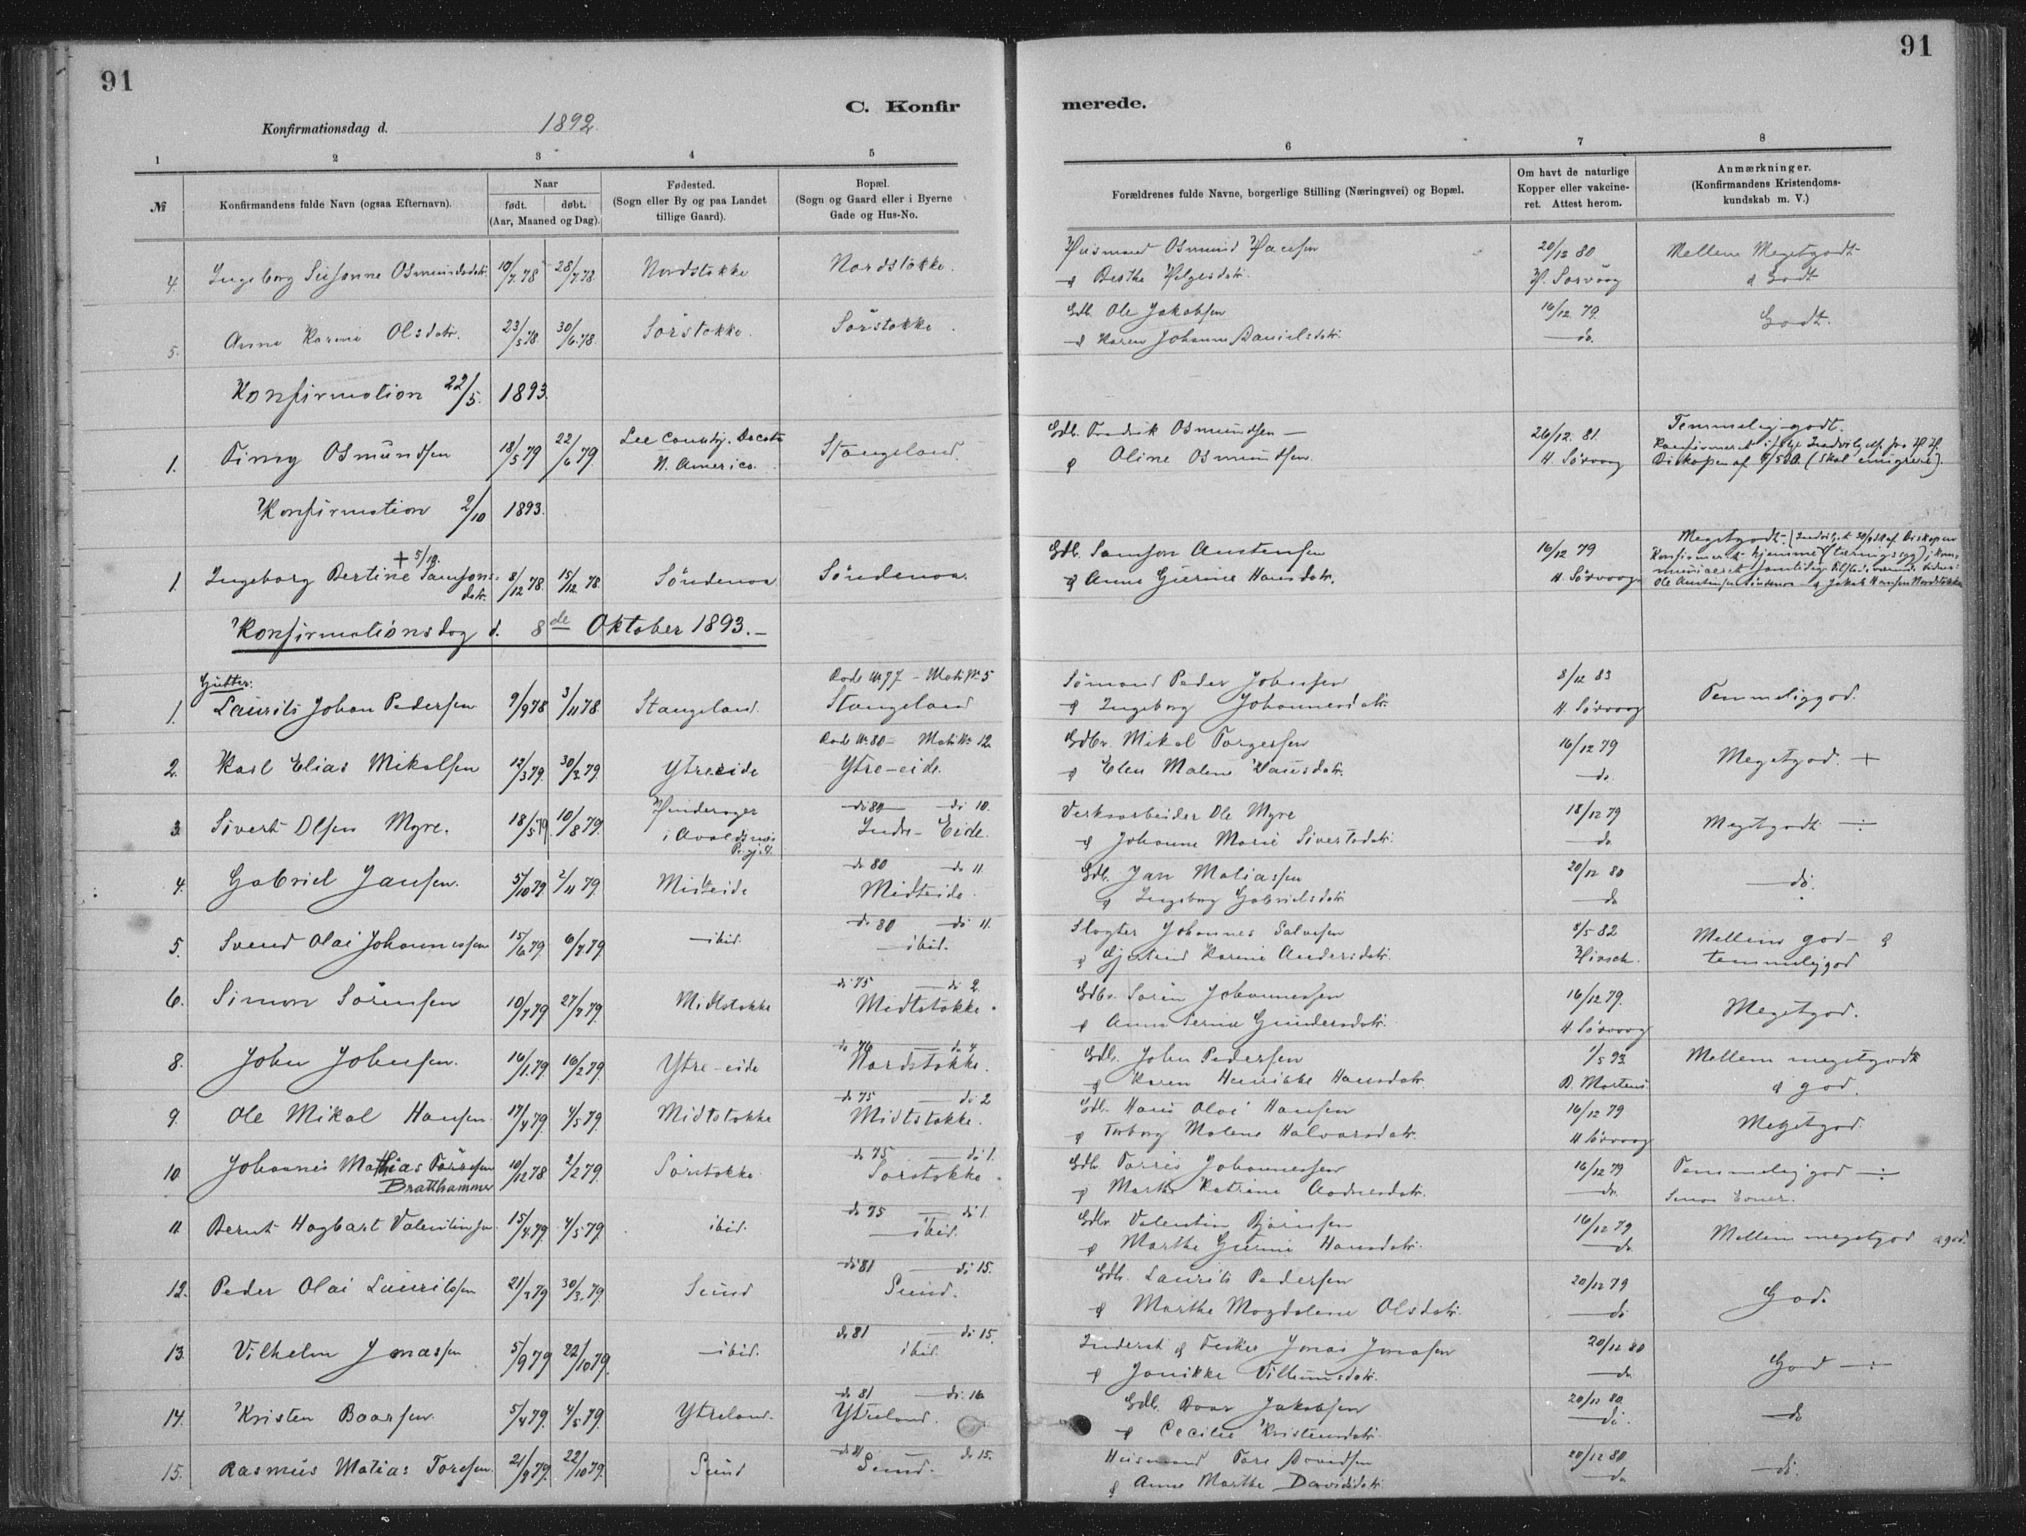 91
91
C. Konfir
merede.
Konfirmationsdag d. 1892.
1 2 3 4 5 6 7 8
№ Konfirmandens fulde Navn (ogsaa Efternavn).
Naar
født. døbt.
(Aar, Maaned og Dag).
Fødested.
(Sogn eller By og paa Landet
tillige Gaard).
Bopæl.
(Sogn og Gaard eller i Byerne
Gade og Hus-No.
Forældrenes fulde Navne, borgerlige Stilling (Næringsvei) og Bopæl.
Om havt de naturlige
Kopper eller vakcine-
ret. Attest herom.
Anmærkninger.
(Konfirmandens Kristendoms-
kundskab m. V.)
4. Ingeborg Susanne Osmundsdatr. 10/7 78 28/7 78 Nordstokke Nordstokke. Husmand Osmund Hansen 20/12 80 Mellem Megetgodt
& Berthe Helgesdatr. H. Sørvaag & Godt
5. Anne Karine Olsdatr. 23/5 78 30/6 78 Sørstokke. Sørstokke. Gdb. Ole Jakobsen 16/12 79. Godt.
& Karen Johanne Danielsdatr. do.
Konfirmation 22/5. 1893.
1. Timy Osmundsen 18/5 79 22/6 79. Lee County. Dacota Stangeland. Gdb. Fredrik Osmundsen — 26/12. 81. Temmelig godt.
N. America. & Oline Osmundsen. H. Sørvaag Biskopen af (skal emigrere).
Konfirmation 2/10 1893.
+ 5/10.
1. Ingeborg Bertine Samsons- 8/12 78. 15/12 78 Søndenaa Søndenaa. Gdb. Samson Austensen 16/12 79 Megetgodt.
datr. & Anne Gurine Hansdatr. H. Sørvaag
Konfirmationsdag d. 8de Oktober 1893.—
Gutter:
Rode № 77 – Matr.№ 5
1. Laurits Johan Pedersen 9/9 78 3/11 78 Stangeland. Stangeland Sømand Peder Johnsen 8/12 83 Temmeliggod.
& Ingeborg Johannesdatr. H. Sørvaag
Rode № 80 – Matr.№ 12
2. Karl Elias Mikalsen 12/3 79. 30/3 79. Ytreeide Ytre-eide. Gdbr. Mikal Torgersen 16/12 79 Megetgod. +
& Elen Malene Hansdatr. do.
do 80 — do 10.
3 Sivert Olsen Myre. 18/5 79. 10/8 79. Hinderager Indre-Eide. Verksarbeider Ole Myre 18/12 79 Megetgodt ÷
i Avaldsnes & Johanne Marie Sivertsdatr. do
Prgj.d.
do 80 do 11
4. Gabriel Jansen. 5/10 79 2/11 79. Midteide Midteide. Gdb. Jan Matiassen 20/12 80 do.
& Ingeborg Gabrielsdatr. do
do 80 — do 11.
5. Svend Olai Johannessen 15/6 79 6/7 79 ibid. ibid. Slagter Johannes Salvesen 8/5 82 Mellem god— &
& Gjertrud Karine Andersdatr. Hirsch. temmeliggod
do 75 — do 2.
6. Simon Sörensen 10/7 79 27/7 79. Midtstokke Midtstokke. Gdbr. Sören Johannessen 16/12 79. Megetgod.
& Anne Serine Gundersdatr. H. Sørvaag
do 76 do 4
8. John Johnsen. 16/1 79. 16/2 79. Ytre-eide Nordstokke. Gdb. John Pedersen 1/5 93 Mellem megetgodt
& Karen Henrikke Hansdatr. B. Mortens & god.
do 75 do 2
9. Ole Mikal Hansen. 17/4 79 4/5 79 Midtstokke Midtstokke. Gdb. Hans Olai Hansen 16/12 79 Megetgod.
& Torborg Malene Halvorsdatr. H Sørvaag
do 75 — do 1.
10. Johannes Mathias Tørresen 10/12 78. 2/2 79. Sørstokke Sørstokke. Gdb. Torris Johannessen 16/12 79 Temmeliggod ÷
Bratthammer & Marthe Katrine Aadnesdatr. do.
do 75 — do 1.
11 Bernt Hagbart Valentinsen 15/4 79. 4/5 79 ibid. ibid. Gdbr Valentin Bjørnsen 16/12 79 Mellem megetgod & god.
& Marthe Gurine Hansdatr. do
do 81 — do 15.
12. Peder Olai Lauritsen 21/3 79 30/3. 79. Sund Sund. Gdb. Laurits Pedersen 20/12 79 God.
& Marthe Magdalene Olsdatr. do
do 81 — do 15.
13. Vilhelm Jonassen 5/9 79 22/10 79. ibid. ibid. Inderst & Fisker Jonas Jonasen 20/12 80 God ÷
& Jonikke Villumsdatr. do
do 81 — do. 16
14. Kristen Baarsen. 5/4 79. 4/5 79. Ytreland. Ytreland. Gdb. Baar Jakobsen 20/12 80 do
& Cecilie Kristensdatr. do.
do 81 — do 15.
15. Rasmus Matias Toresen. 21/9 79. 22/10 79. Sund Sund. Husmand Tore Aavidsen 20/12 80 do.
& Anne Marthe Davidsdatr. do